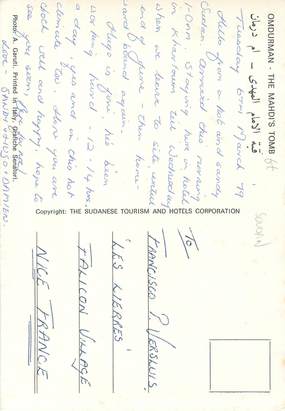 OMDURMAN - THE MAHDI'S TOMB
قبة الامام المهدى - ام درمان
Tuesday 6th March 79
Hello from a hot and sandy
Sudan. Arrived this morning
1-0am. Staying here in hotel
in Khartoum till Wednesday
when we leave to site until
end of June then home-
ward bound again.
Hugo is fine, has been
working hard - 12-14 hrs.
a day, yes and in this hot
climate too. Hope you are
both well and happy, hope to
see you soon.
Love - SANDY + HUGO + DAMIEN.
Photo: A. Garuti. Printed in Italy, Grafiche Saroltari.
Copyright: THE SUDANESE TOURISM AND HOTELS CORPORATION
SUDAN
To
FRANCISCO P. VERSLUIS.
'LES LIERRES'
FALICON VILLAGE
NICE FRANCE